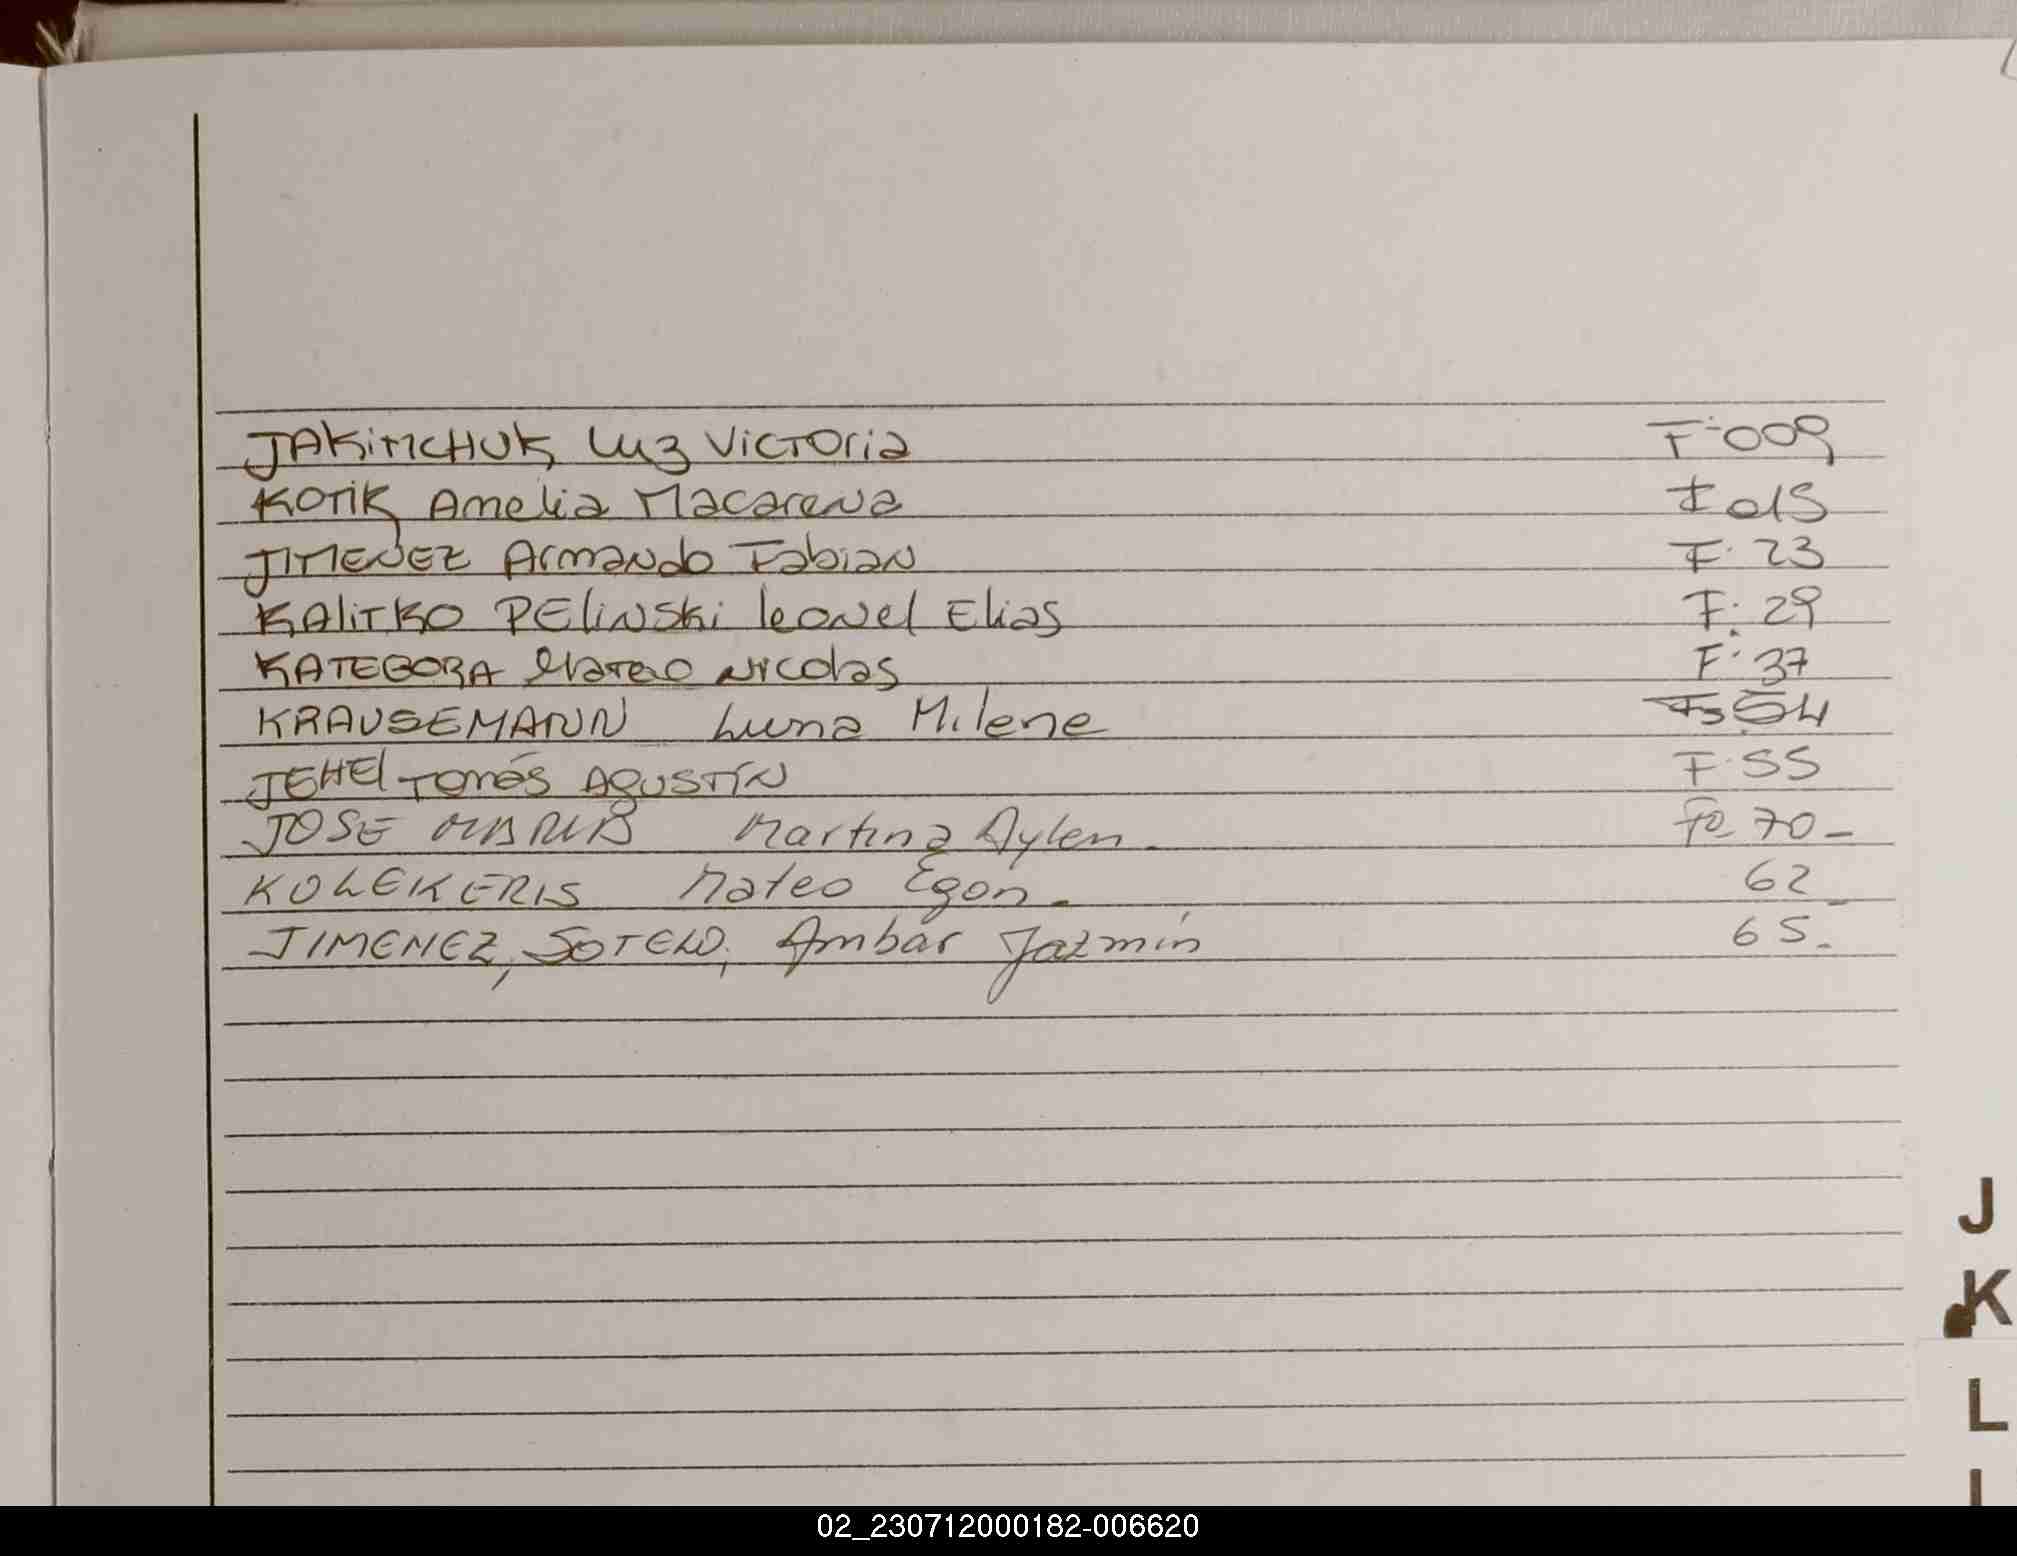 JAKIMCHUK, Luz Victoria F-009
KOTIK, Amelia Macarena F 015
JIMENEZ Armando Fabian F. 23
KALITKO PELINSKI Leonel Elias F. 29
KATEGORA Mateo Nicolas F. 37
KRAUSEMANN Luna Milene 54
JEHEL TOMÁS AGUSTÍN F. 55
JOSE MARIA Martina Aylen. Fº 70-
KOLEKERIS Mateo Egon. 62
JIMENEZ, SOTELO, Ambar Jazmín 65.
J
K
L
02_230712000182-006620